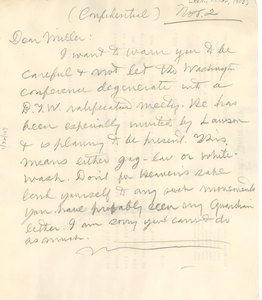 (Confidential)
Nov. 2
Dear Miller:
I want to warn you to be
careful & not let the Washington
conference degenerate into a
B.T.W. ratification meeting. He has
been especially invited by Lawson
& is planning to be present. This
means either gag-law or white-
wash. Don't for Heaven's sake
lend yourself to any such movement.
You have probably seen my Guardian
letter. I am sorry you cannot do
as much.